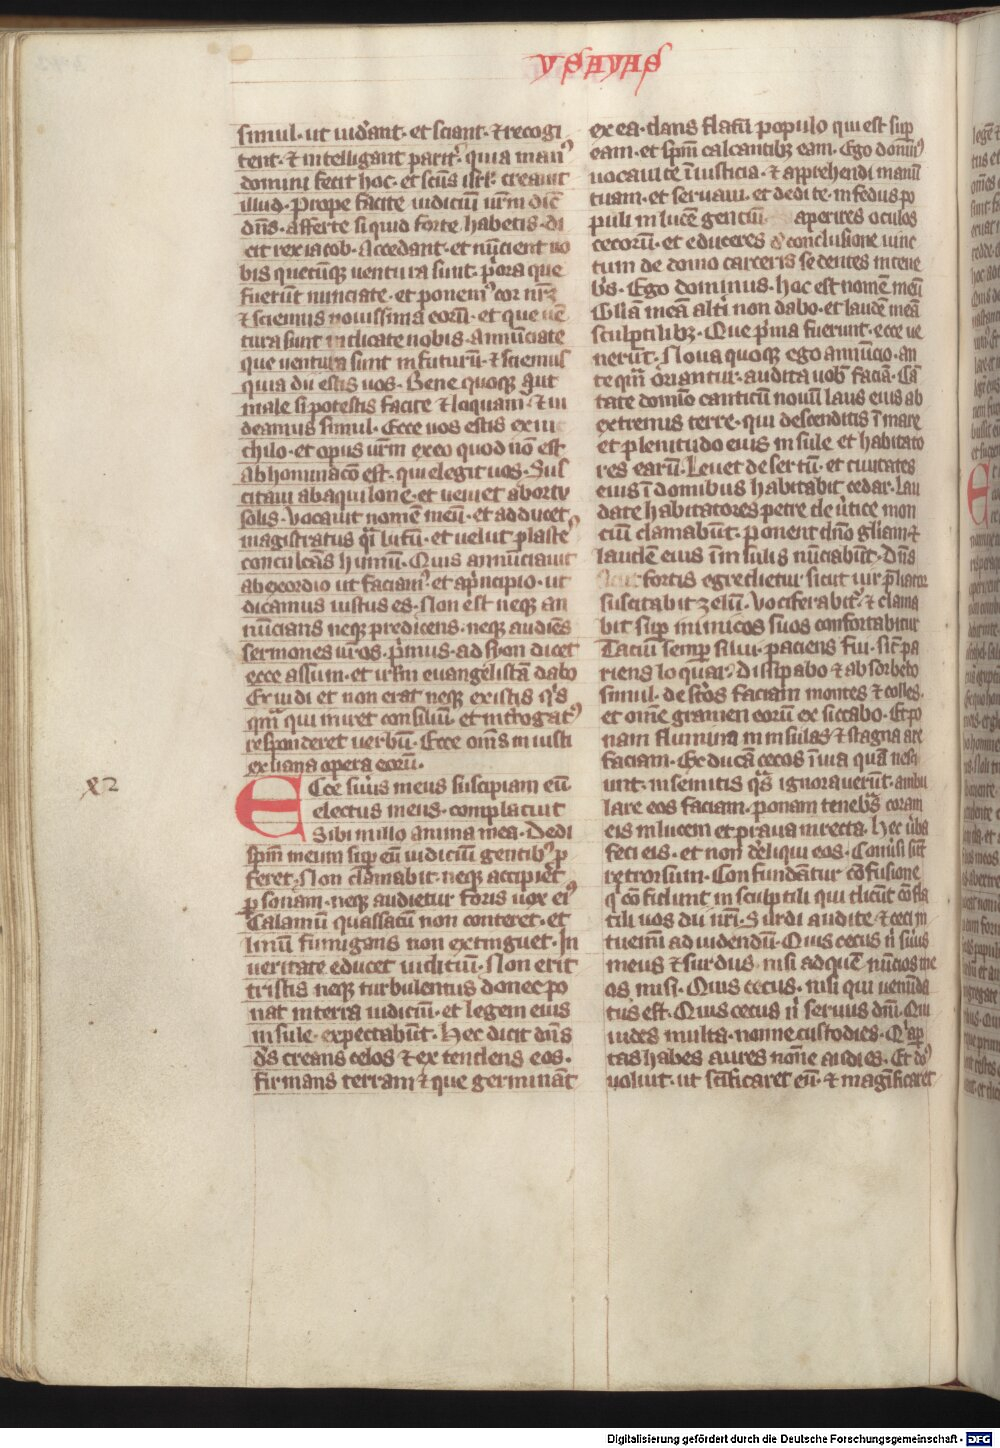 ysayas
simul · ut uid'ant · et sciant · ⁊ recogi
tent · ⁊ intelligant parit' · quia man9
domini fecit hoc · et sc̄us isrl̓ · creauit
illud · Prope facite iudiciū ur̄m dic̄
dn̄s · afferte siquid forte habetis · di
cit rex iacob · Accedant · et nūcient uo
bis quecūq; uentura sunt · p̓ora que
fuerūt nunciate · et ponem9 cor nr̄ꝫ
⁊ sciemus nouissima eorū · et que uē
tura sunt indicate nobis · Annūciate
que uentura sunt in futurū · ⁊ sciemus
quia dii estis uos · Bene quoq; aut
male si potestis facite ⁊ loquam̓ · ⁊ ui
deamus simul · Ecce uos estis ex ni
chilo · et opus ur̄m ex eo quod nō est
abhominacō est · qui elegit uos · Sus
citaui ab aquilone · et ueniet aborту
solis · Vocauit nomē meū · et adducet
magistratus q̓i lutū · et uelut plastes
conculcās humū · Quis annūciauit
ab exordio ut sciam9 · et ap̓ncipio · ut
dicamus iustus es · Non est neq; an
nūcians neq; predicens · neq; audiēs
sermones ur̄os · p̓mus · ad syon dicet
ecce assum · et ir̄lm euangelistā dabo
Et uidi et non erat neq; ex istis q̓s
qm̄ qui iniret consiliū · et int̓rogat9
responderet uerbū · Ecce om̄s iniusti
et uana opera eorū ·
x2
Ecce s̓uus meus suscipiam eū
electus meus · complacuit
sibi in illo anima mea · Dedi
sp̄m meum sup eū iudiciū gentib9 p
feret · Non clamabit · neq; accipiet
ꝑsonam · neq; audietur foris uox ei9
Calamū quassatū non conteret · et
linū fumigans non extinguet · In
ueritate educet iudiciū · Non erit
tristis neq; turbulentus donec po
nat in terra iudiciū · et legem eius
insule · expectabūt · Hec dicit dn̄s
ds̄ creans celos ⁊ extendens eos ·
firmans terram ⁊ que germināt
ex ea · dans flatū populo qui est sup
eam · et sp̄m calcantibꝫ eam · Ego domin9
uocaui te ī iusticia · ⁊ apprehendi manū
tuam · et seruaui · et dedi te · in fedus po
puli in lucē genciū aperires oculos
cecorū · et educeres d̓ conclusione uinc
tum de domo carceris sedentes in tene
b̓s · Ego dominus · hoc est nomē meū
Gl̄iā meā alt̓i non dabo · et laudē meā
sculptilibꝫ · Que p̓ma fuerunt · ecce ue
nerūt · Noua quoq; ego annūcio · an
te qm̄ oriantur · audita uob̄ faciā · Cā
tate domīo canticū nouū laus eius ab
extremis terre · qui descenditis ī mare
et plenitudo eius insule et habitato
res earū · Leuet desertū · et ciuitates
eius ī domibus habitabit cedar · Lau
date habitatores petre de u̓tice mon
ciū clamabūt · ponent dn̄o gl̄iam ⁊
laudē eius ī insulis nūciabūt · Dn̄s
sicut fortis egredietur sicut uir p̄liator
suscitabit zelū · Vociferabit̓ · ⁊ clama
bit sup inimicos suos confortabitur
Tacui semp silui · paciens fui · sic̄ pa
riens loquar · Dissipabo ⁊ absorbebo
simul · desertos faciam montes ⁊ colles ·
et omē gramen eorū exsiccabo · Et po
nam flumina in insulas ⁊ stagna are
faciam · Et ducā cecos ī uia quā nesci
unt · in semitis q̓s ignorauerūt · ambu
lare eos faciam · ponam tenebras coram
eis in lucem et praua in recta · Hec u̓ba
feci eis · et non d̓eliqui eos · Conu̓si sūt
retrorsum · Confundātur cōfusione
q̓ cōfidunt in sculptili qui dicūt cōfla
tili uos dii nr̄i · Surdi audite · ⁊ ceci in
tuemī ad uidendū · Quis cecus n̓ s̓uus
meus ⁊ surdus · nisi ad quē nūcios me
os misi · Quis cecus · nisi qui uenūda
tus est · Quis cecus n̓ seruus dn̄i · Qui
uides multa · nonne custodies · Q̓ ap
tas habes aures nōne audies · Et dn̄s
uoluit · ut sc̄ificaret eū · ⁊ magnificaret
Digitalisierung gefördert durch die Deutsche Forschungsgemeinschaft - DFG